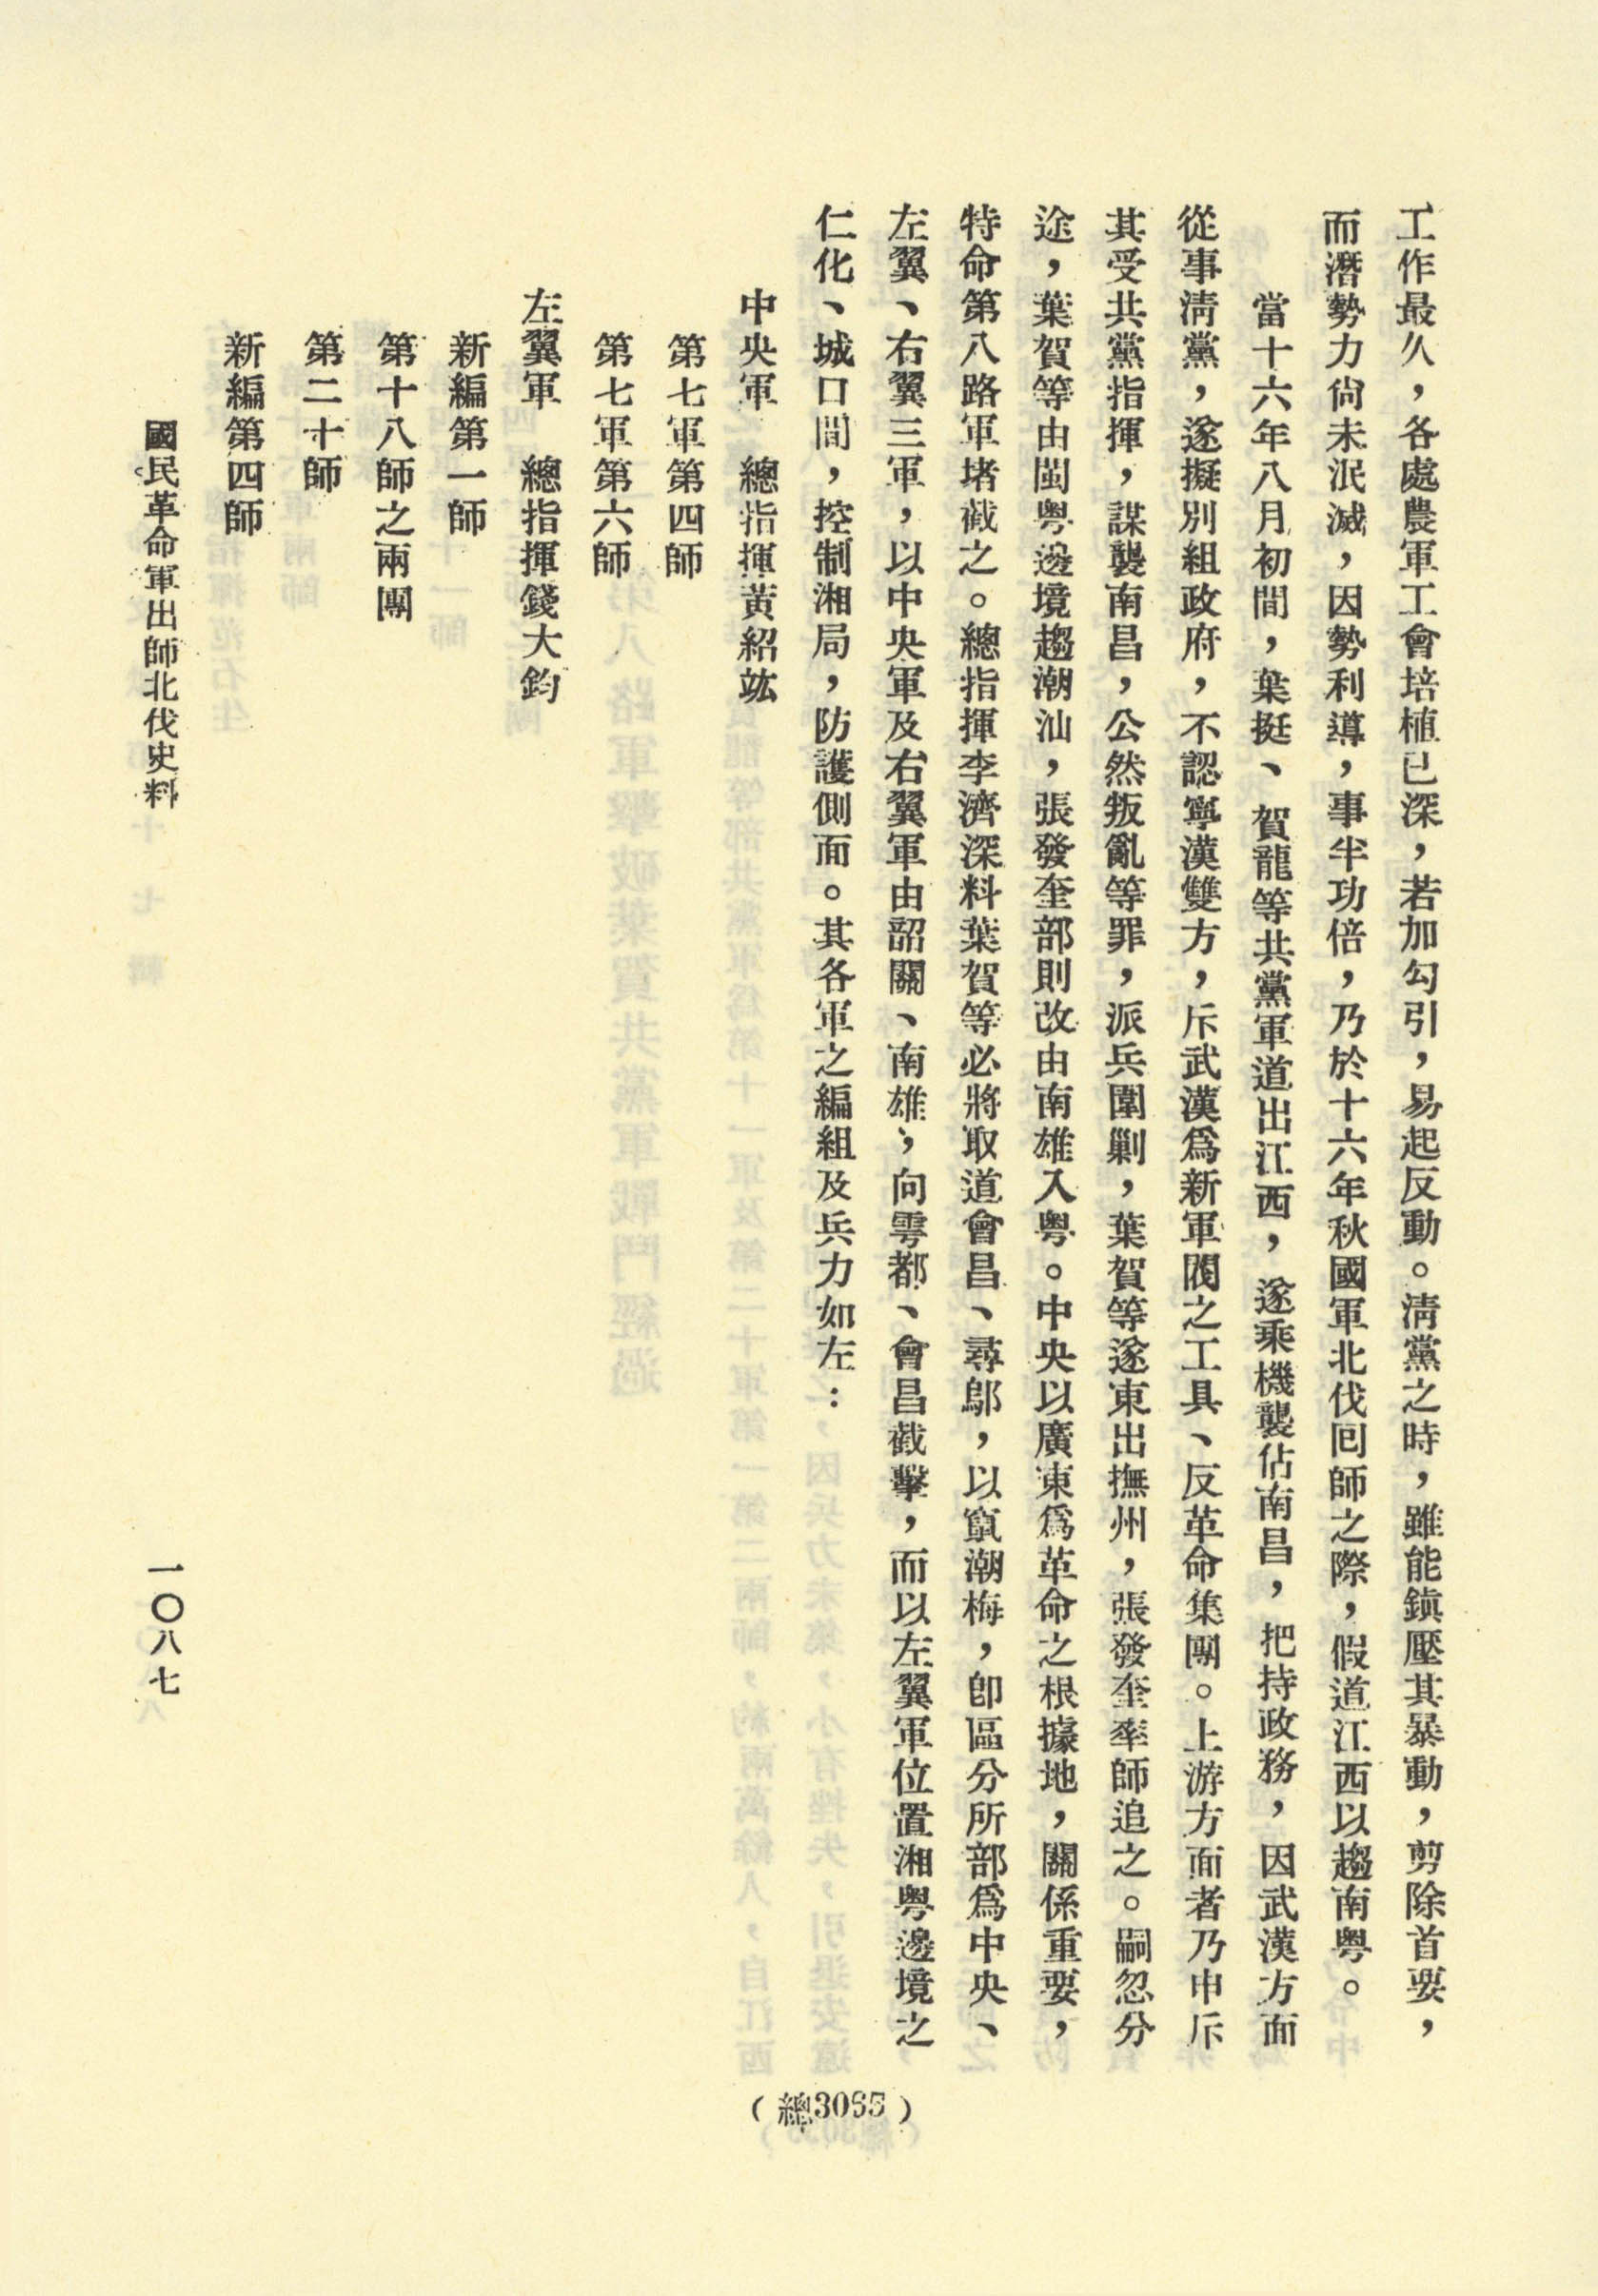 工作最久，各處農軍工會培植已深，若加勾引，易起反動。淸黨之時，雖能鎮壓其暴動，剪除首要，
而潛勢力尙未泯滅，因勢利導，事半功倍，乃於十六年秋國軍北伐回師之際，假道江西以趨南粤。
當十六年八月初間，葉挺、賀龍等共黨軍道出江西，遂乘機襲佔南昌，把持政務，因武漢方面
從事淸黨，遂擬別組政府，不認寧漢雙方，斥武漢爲新軍閥之工具、反革命集團。上游方面者乃申斥
其受共黨指揮，謀襲南昌，公然叛亂等罪，派兵圍剿，葉賀等遂東出撫州，張發奎率師追之。嗣忽分
途，葉賀等由閩粤邊境趨潮汕，張發奎部則改由南雄入粤。中央以廣東爲革命之根據地，關係重要，
特命第八路軍堵截之。總指揮李濟深料葉賀等必將取道會昌、尋鄔，以竄潮梅，卽區分所部爲中央、
左翼、右翼三軍，以中央軍及右翼軍由韶關、南雄，向雩都、會昌截擊，而以左翼軍位置湘粤邊境之
仁化、城口間，控制湘局，防護側面。其各軍之編組及兵力如左：
中央軍　總指揮黃紹竑
第七軍第四師
第七軍第六師
左翼軍　總指揮錢大鈞
新編第一師
第十八師之兩團
第二十師
新編第四師
國民革命軍出師北伐史料
一〇八七
（總3065）